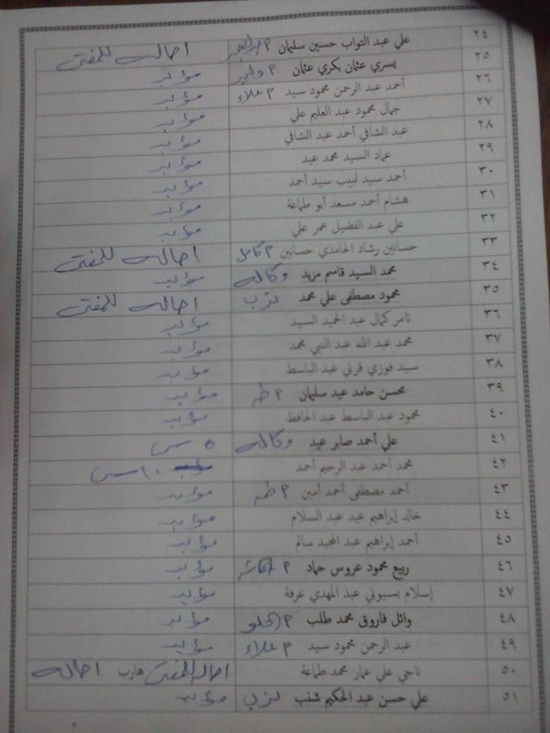 ٢٤ علي عبد التواب حسين سليمان احاله للمفتى
٢٥ يسري عثمان بكري عثمان مؤبد
٢٦ أحمد عبد الرحمن محمود سيد م علاء مؤبد
٢٧ جمال محمود عبد العليم علي مؤبد
٢٨ عبد الشافي أحمد عبد الشافي مؤبد
٢٩ عماد السيد محمد عيد مؤبد
٣٠ أحمد سيد لبيب سيد أحمد مؤبد
٣١ هشام أحمد مسعد أبو طماعة مؤبد
٣٢ علي عبد الفضيل عمر علي مؤبد
٣٣ حسانين رشاد الحامدي حسانين م كامل احاله للمفتى
٣٤ محمد السيد قاسم مزيد وكاله مؤبد
٣٥ محمود مصطفى علي محمد احاله للمفتى
٣٦ تامر كمال عبد الحميد السيد مؤبد
٣٧ محمد عبد الله عبد النبي محمد مؤبد
٣٨ سيد فوزي قرني عبد الباسط مؤبد
٣٩ محسن حامد عيد سليمان م طه مؤبد
٤٠ محمود عبد الباسط عبد الحافظ مؤبد
٤١ علي أحمد صابر عيد وكاله ٥ س
٤٢ محمد أحمد عبد الرحيم أحمد ١٠ س
٤٣ أحمد مصطفى أحمد أمين م طه مؤبد
٤٤ خالد إبراهيم عيد عبد السلام مؤبد
٤٥ أحمد إبراهيم عبد المجيد سالم مؤبد
٤٦ ربيع محمود عروس حماد مؤبد
٤٧ إسلام بسيوني عبد المهدي عرفة مؤبد
٤٨ وائل فاروق محمد طلب م الحلو مؤبد
٤٩ عبد الرحمن محمود سيد م علاء مؤبد
٥٠ ناجي علي عمار محمد طماعة هارب احاله للمفتى احاله
٥١ علي حسن عبد الحكيم شنب مؤبد